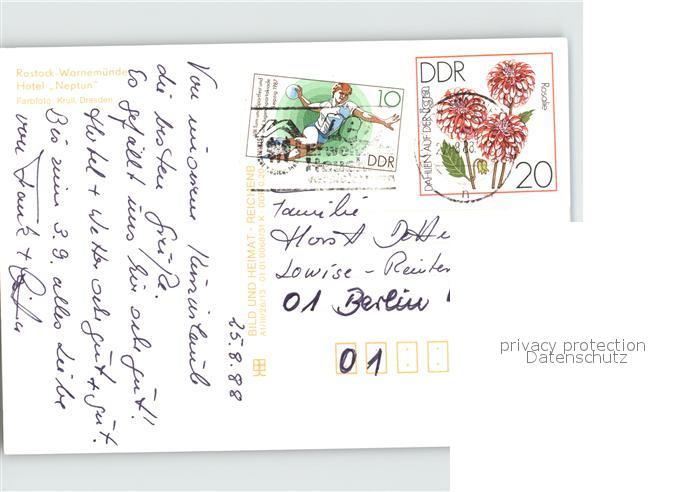 Rostock-Warnemünde
Hotel „Neptun"
Farbfoto Krull, Dresden
Von unserem Kurzurlaub
die besten Grüße.
Es gefällt uns hier sehr gut!
Hotel + Wetter sehr gut + gut.
Bis zum 3.9. alles Liebe
von Frank +
25.8.88
BILD UND HEIMAT · REICHENB
A1/IV/26/13 01 01 0068/31 K
10
DDR
DDR
DAHLIEN AUF DER
Rosalie
20
Familie
Horst
01 Berlin
01
privacy protection
Datenschutz